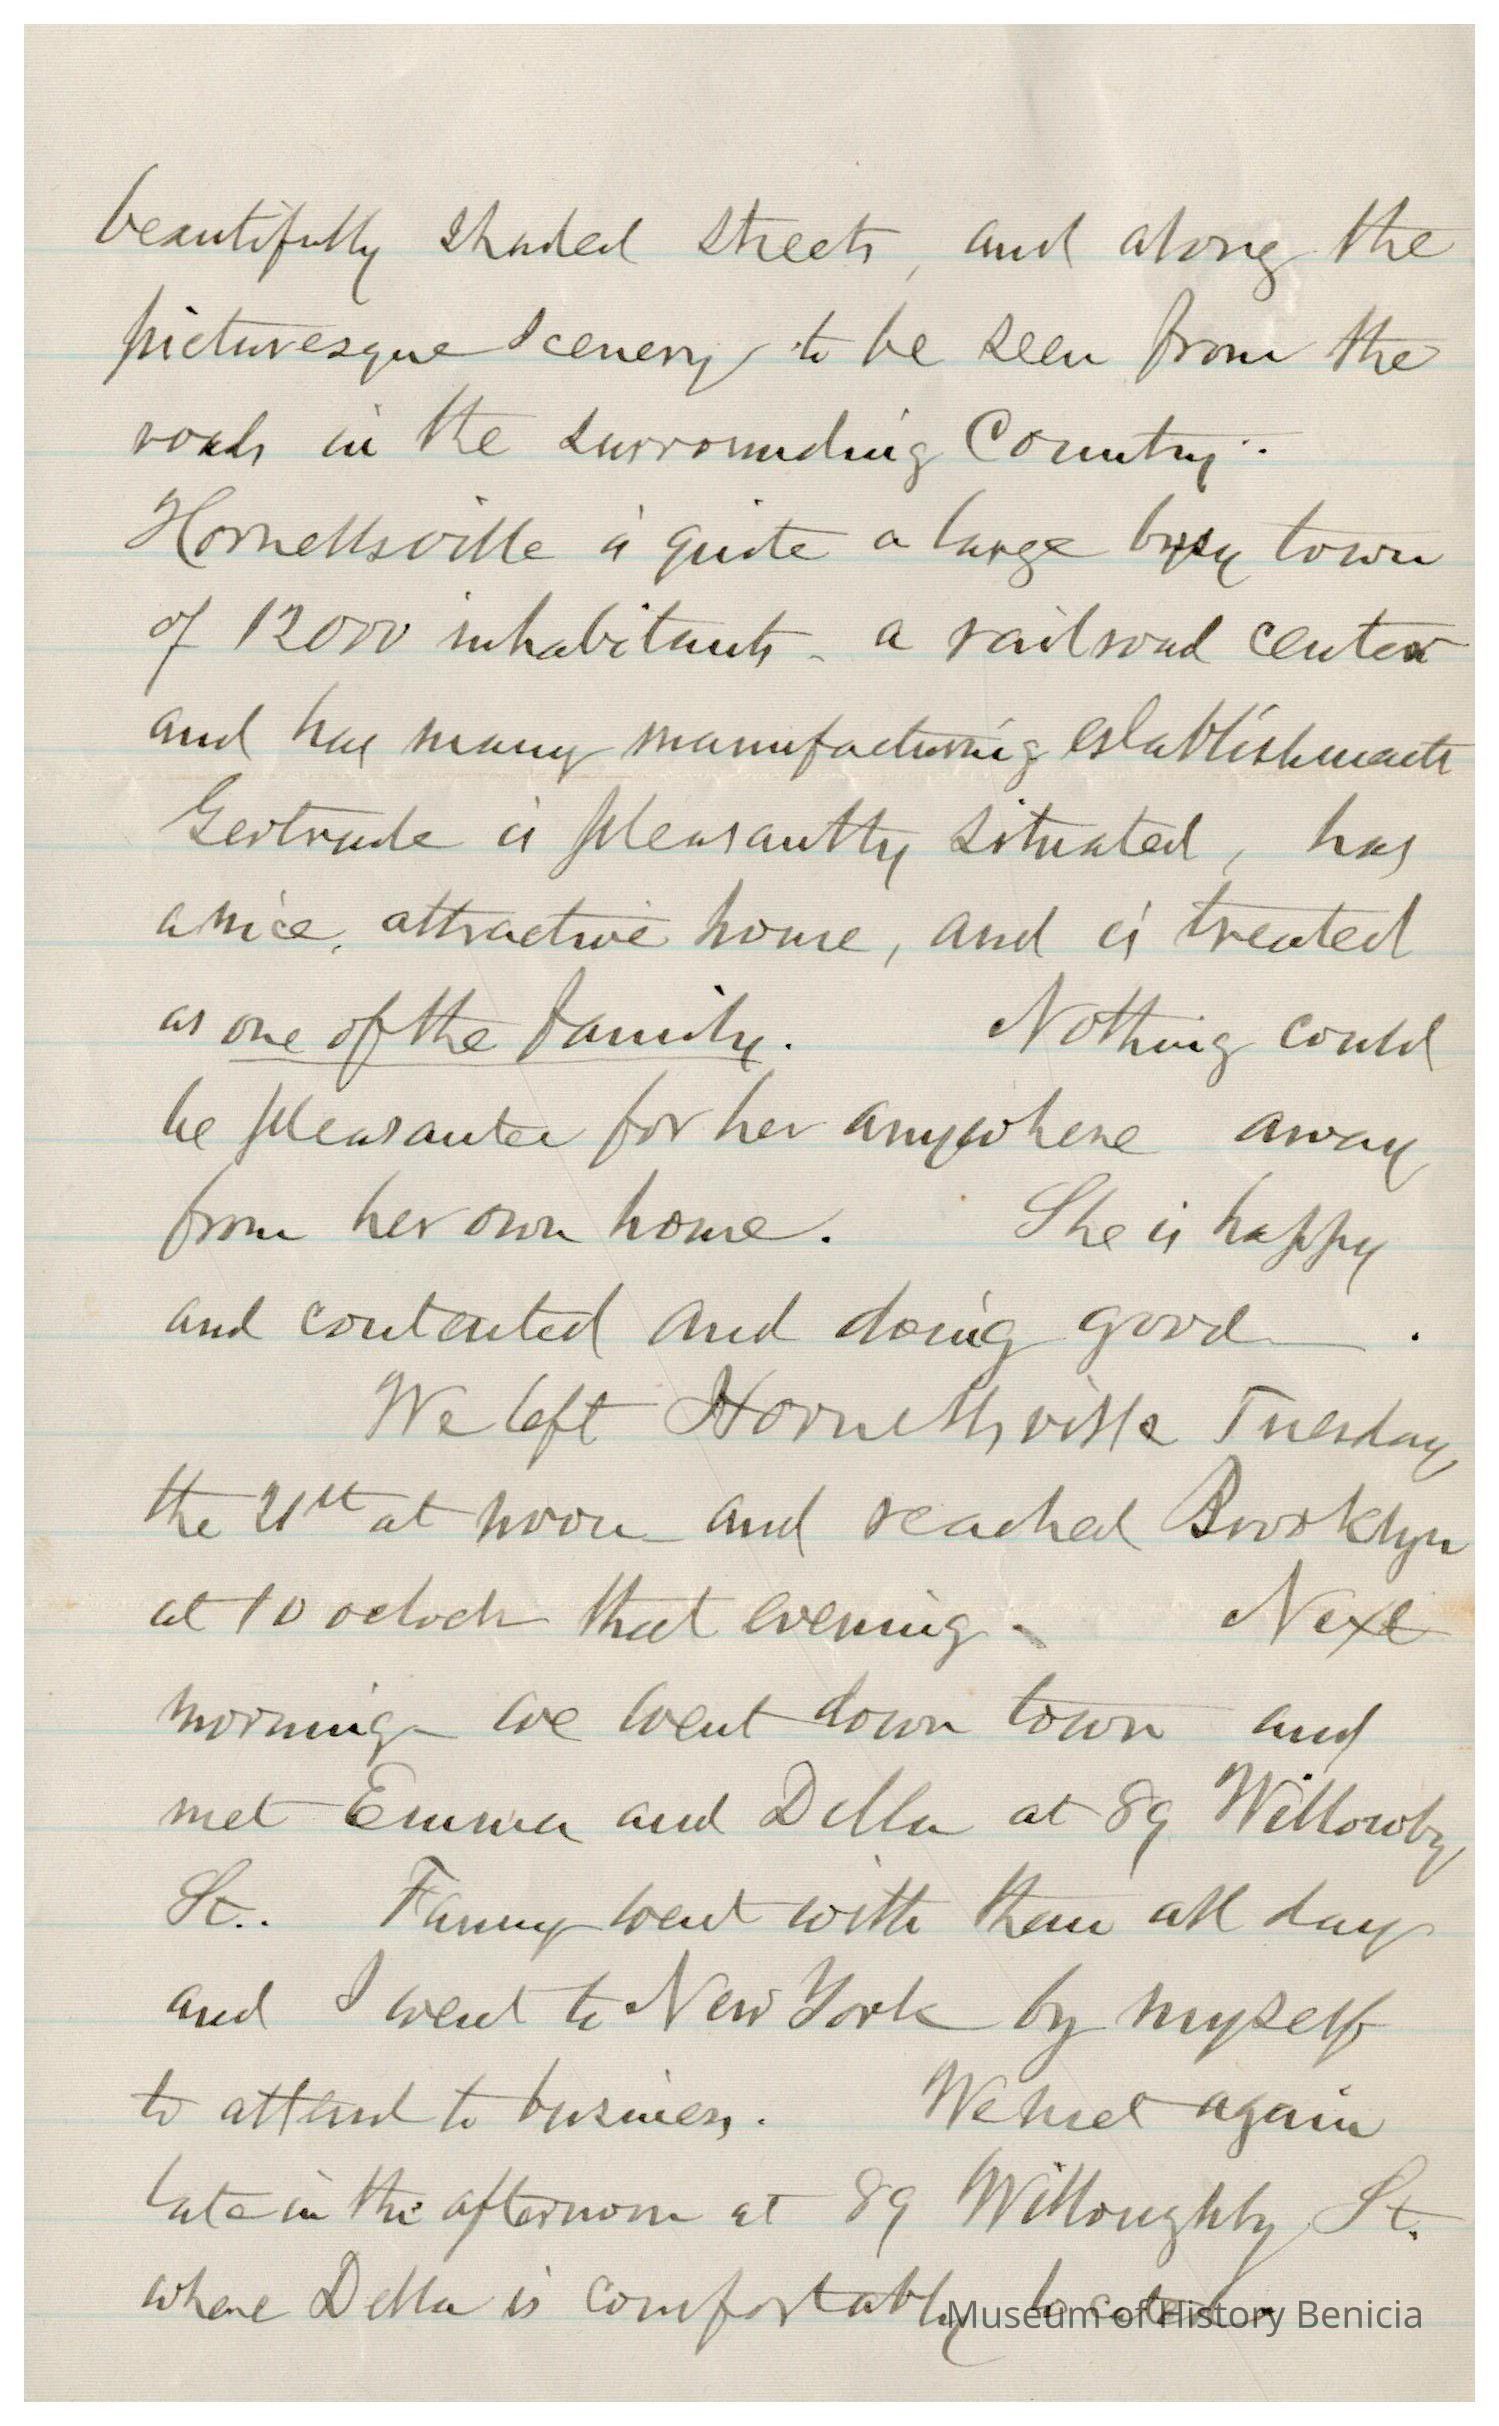 beautifully shaded streets, and along the
picturesque scenery to be seen from the
roads in the surrounding Country.
Hornellsville is quite a large busy town
of 12000 inhabitants - a railroad center
and has many manufacturing establishments
Gertrude is pleasantly situated, has
a nice, attractive home, and is treated
as one of the family. Nothing could
be pleasanter for her anywhere away
from her own home. She is happy
and contented and doing good.
We left Hornellsville Tuesday
the 21st at noon and reached Brooklyn
at 10 oclock that evening - Next
morning we went down town and
met Emma and Della at 89 Willowby
St.. Fanny went with them all day
and I went to New York by myself
to attend to business. We met again
late in the afternoon at 89 Willoughby St.
where Della is comfortably located.
Museum of History Benicia